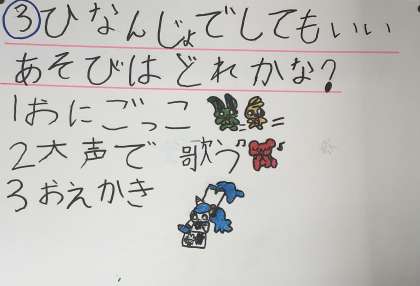 ③ひなんじょでしてもいい
あそびはどれかな?
1おにごっこ
2大声で歌う
3おえかき